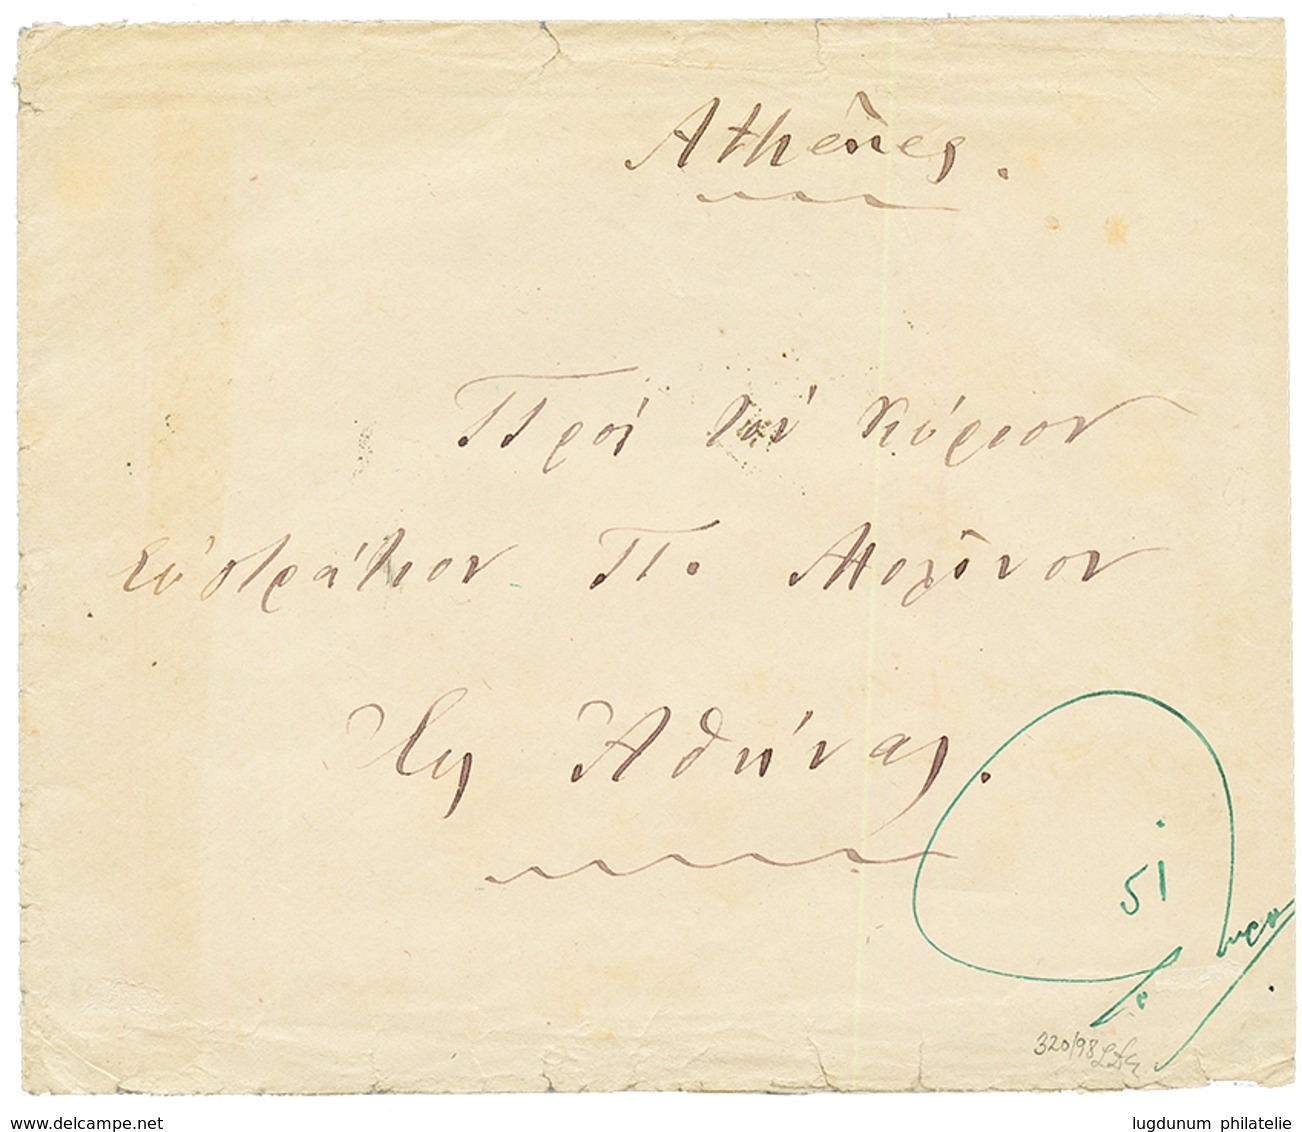 Athênes.
Πρὸς τὸν Κύριον
Εὐστράτιον Π. Μολῖνον
Εἰς Ἀθήνας.
51
320/98
www.delcampe.net
lugdunum philatelie